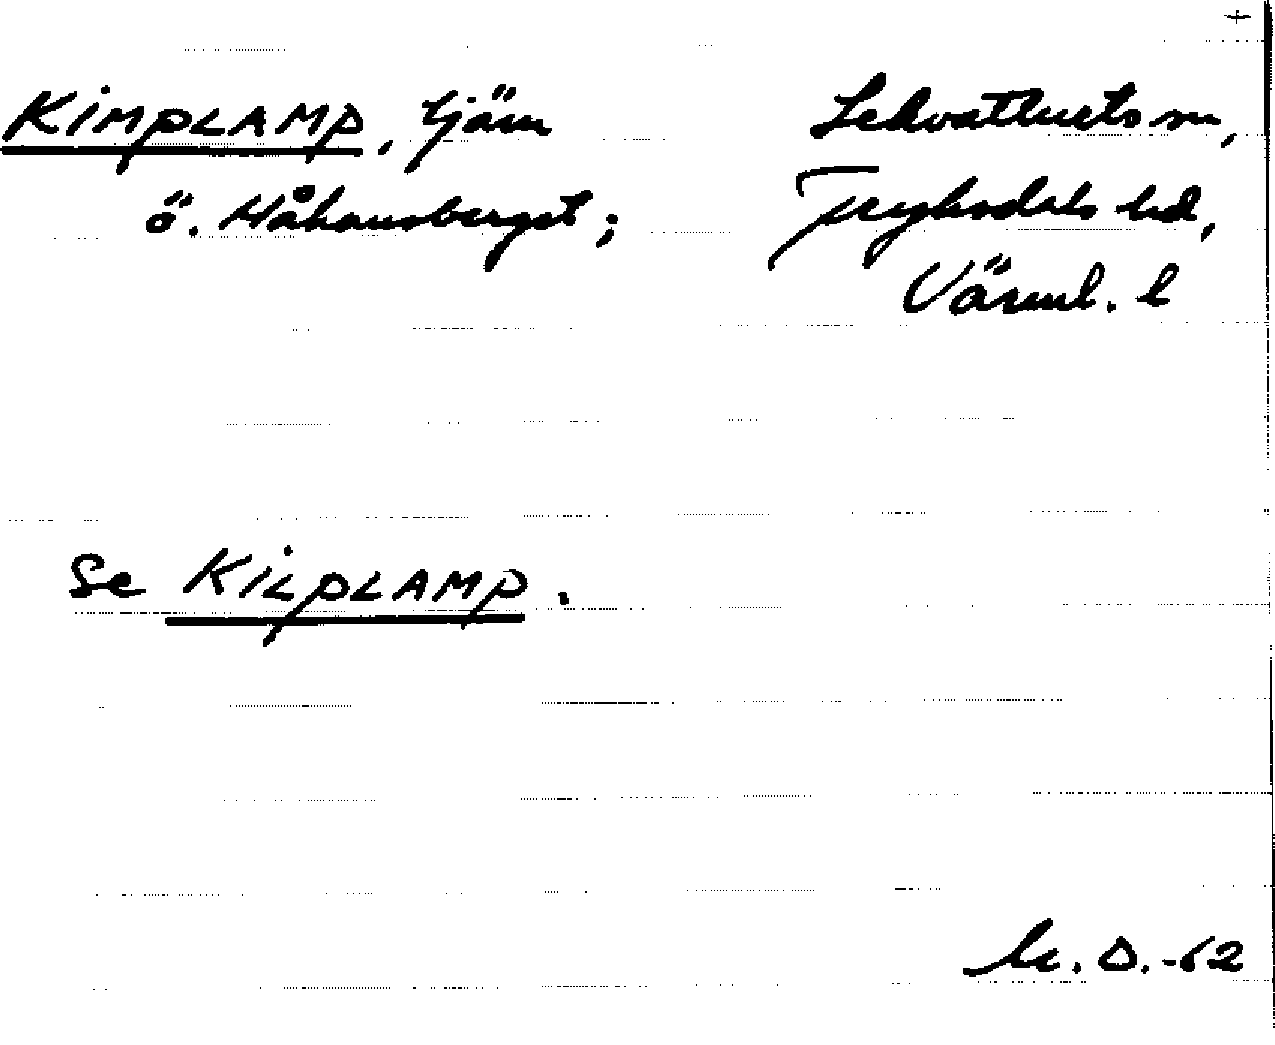 +
KIMPLAMP, tjärn
ö. Håhansberget;
Lekvattnets sn,
Fryksdals hd,
Värml. l
Se KILPLAMP.
O.-62